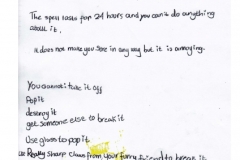 The spell lasts for 24 hours and you can't do anything
about it.
It does not make you sore in any way but it is annoying.
You cannot: take it off
Pop it
destroy it
get someone else to break it
Use glass to pop it
Use Really sharp claws from your furry friend to break it